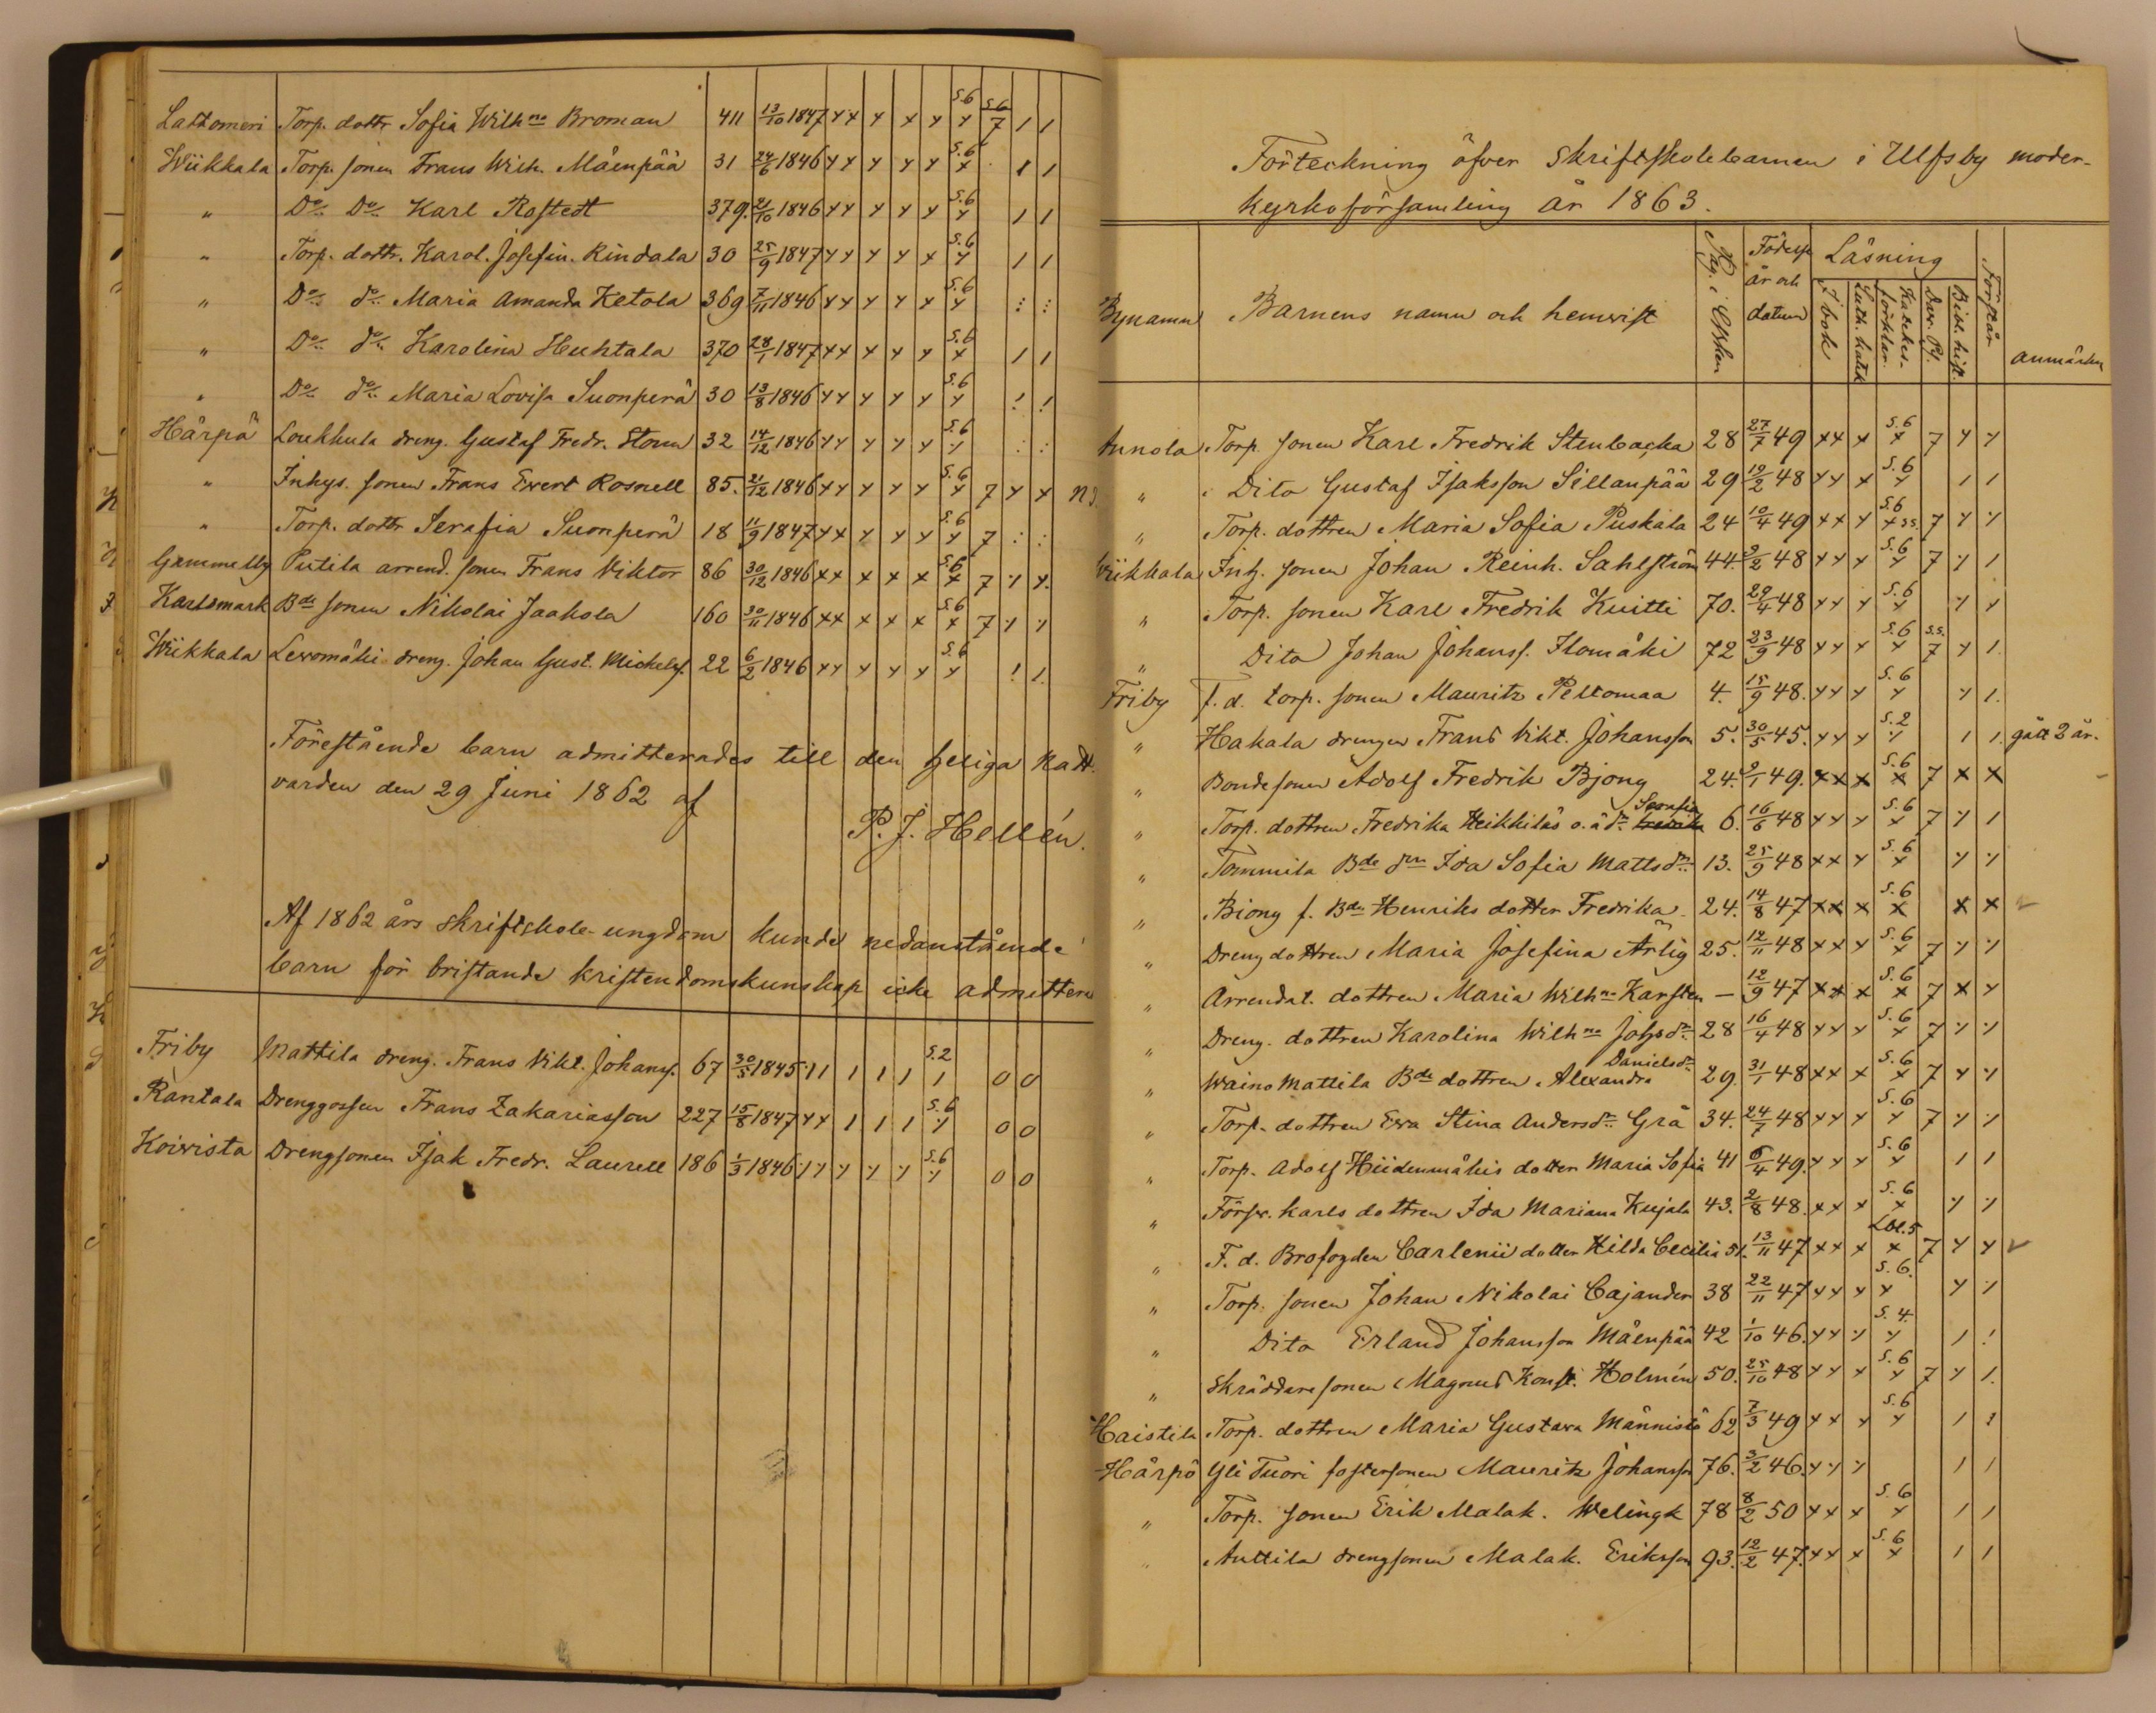 Lattomeri Torp. dottr Sofia Wilhna Broman 411 13/10 1847 S.6 S.6 7
Wiikkala Torp. sonen Frans Wilh. Mäenpää 31 24/6 1846 S.6
" Do Do Karl Rostedt 379. 21/10 1846 S.6
" Torp. dottr. Karol. Josefin. Rindala 30 25/9 1847 S.6
" Do do Maria Amanda Ketola 369 7/11 1846 S.6
" Do do Karolina Huhtala 370 28/1 1847 S.6
" Do do Maria Lovisa Suonperä 30 13/8 1846 S.6
Härpö Loukkula dreng. Gustaf Fredr. Storm 32 14/12 1846 S.6
" Inhys. sonen Frans Evert Rosnell 85. 21/12 1846 S.6 7
" Torp. dottr Serafia Suonperä 18 11/9 1847 S.6 7
Gammelby Piitila arrend. sonen Frans Viktor 86 30/12 1846 S.6 7
Karlsmark Bde sonen Nikolai Jaakola 160 30/11 1846 S.6 7
Wiikkala Levomäki dreng. Johan Gust. Michelss. 22 6/2 1846 S.6
Förestående barn admitterades till den heliga Natt-
varden den 29 Juni 1862 af
P. J. Hellén.
Af 1862 års skriftskole-ungdom kunde nedanstående
barn för bristande kristendomskunskap icke admitteras
Friby Mattila dreng. Frans Vikt. Johanss. 67 30/5 1845 S.2 0 0
Rantala Drenggossen Frans Zakariasson 227 15/8 1847 S.6 0 0
Koivisto Drengsonen Isak Fredr. Laurell 186 1/3 1846 S.6 0 0
Förteckning öfver Skriftskolebarnen i Ulfsby moder-
kyrkoförsamling år 1863.
Bynamn Barnens namn och hemvist Pag. i Födelse år och datum Läsning I bok Luth. katek Katekes- förklar. Dav. Ps. Bibl. hist. Förstår anmärkn
Annola Torp. sonen Karl Fredrik Stenbacka 28 27/7 49 S.6 7
" Dito Gustaf Isaksson Sillanpää 29 19/2 48 S.6
" Torp. dottren Maria Sofia Puskala 24 10/4 49 S.6 7
Wiikkala Inh. sonen Johan Reinh. Sahlström 44. 9/2 48 S.6 7
" Torp. sonen Karl Fredrik Kuitti 70. 29/4 48 S.6
" Dito Johan Johanss. Ilomäki 72 23/9 48 S.6 S.S. 7
Friby f. d. torp. sonen Mauritz Peltomaa 4. 15/9 48. S.6
" Hakala drengen Frans Vikt. Johansson 5. 30/5 45. S.2 gått 2 år.
" Bondesonen Adolf Fredrik Bjong 24. 9/1 49. S.6 7
" Torp. dottren Fredrika Heikkiläs o. ä. dr Serafia 6. 16/6 48 S.6 7
" Tommila Bde drn Ida Sofia Mattsdr 13. 25/9 48 S.6
" Biong f. Bde Henriks dotter Fredrika 24. 14/8 47 S.6
" Dreng dottren Maria Josefina Ärlig 25. 12/11 48 S.6 7
" Arrendat. dottren Maria Wilhna Karsten — 12/9 47 S.6 7
" Dreng. dottren Karolina Wilhna Johsdr 28 16/4 48 S.6 7
" Waino Mattila Bde dottren Alexandra Danielsdr 29. 31/1 48 S.6 7
" Torp. dottren Eva Stina Andersdr Grå 34. 24/7 48 S.6 7
" Torp. Adolf Hiidenmäkis dotter Maria Sofia 41 6/4 49. S.6
" Förfr. Karls dottren Ida Mariana Kujala 43. 2/8 48. S.6
" F. d. Brofogden Carlenii dotter Hilda Cecilia 51. 13/11 47 7
" Torp. sonen Johan Nikolai Cajander 38 22/11 47 S.6.
" Dito Erland Johansson Mäenpää 42 1/10 46. S.4.
" Skräddaresonen Magnus Konst. Holmén 50. 25/10 48 S.6 7
Haistila Torp. dottren Maria Gustava Männistö 62 7/3 49 S.6
Härpö Yli Tuori fostersonen Mauritz Johansson 76. 3/2 46.
" Torp. sonen Erik Malak. Welingk 78 8/2 50 S.6
" Anttila drengsonen Malak. Eriksson 93. 12/2 47. S.6